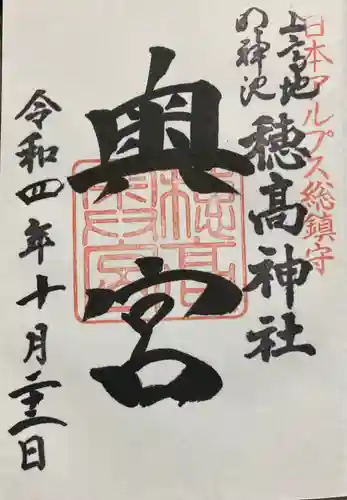 日本アルプス総鎮守
上高地
の神池
穂髙神社
奥宮
穂高
奥宮
令和四年十月二十二日